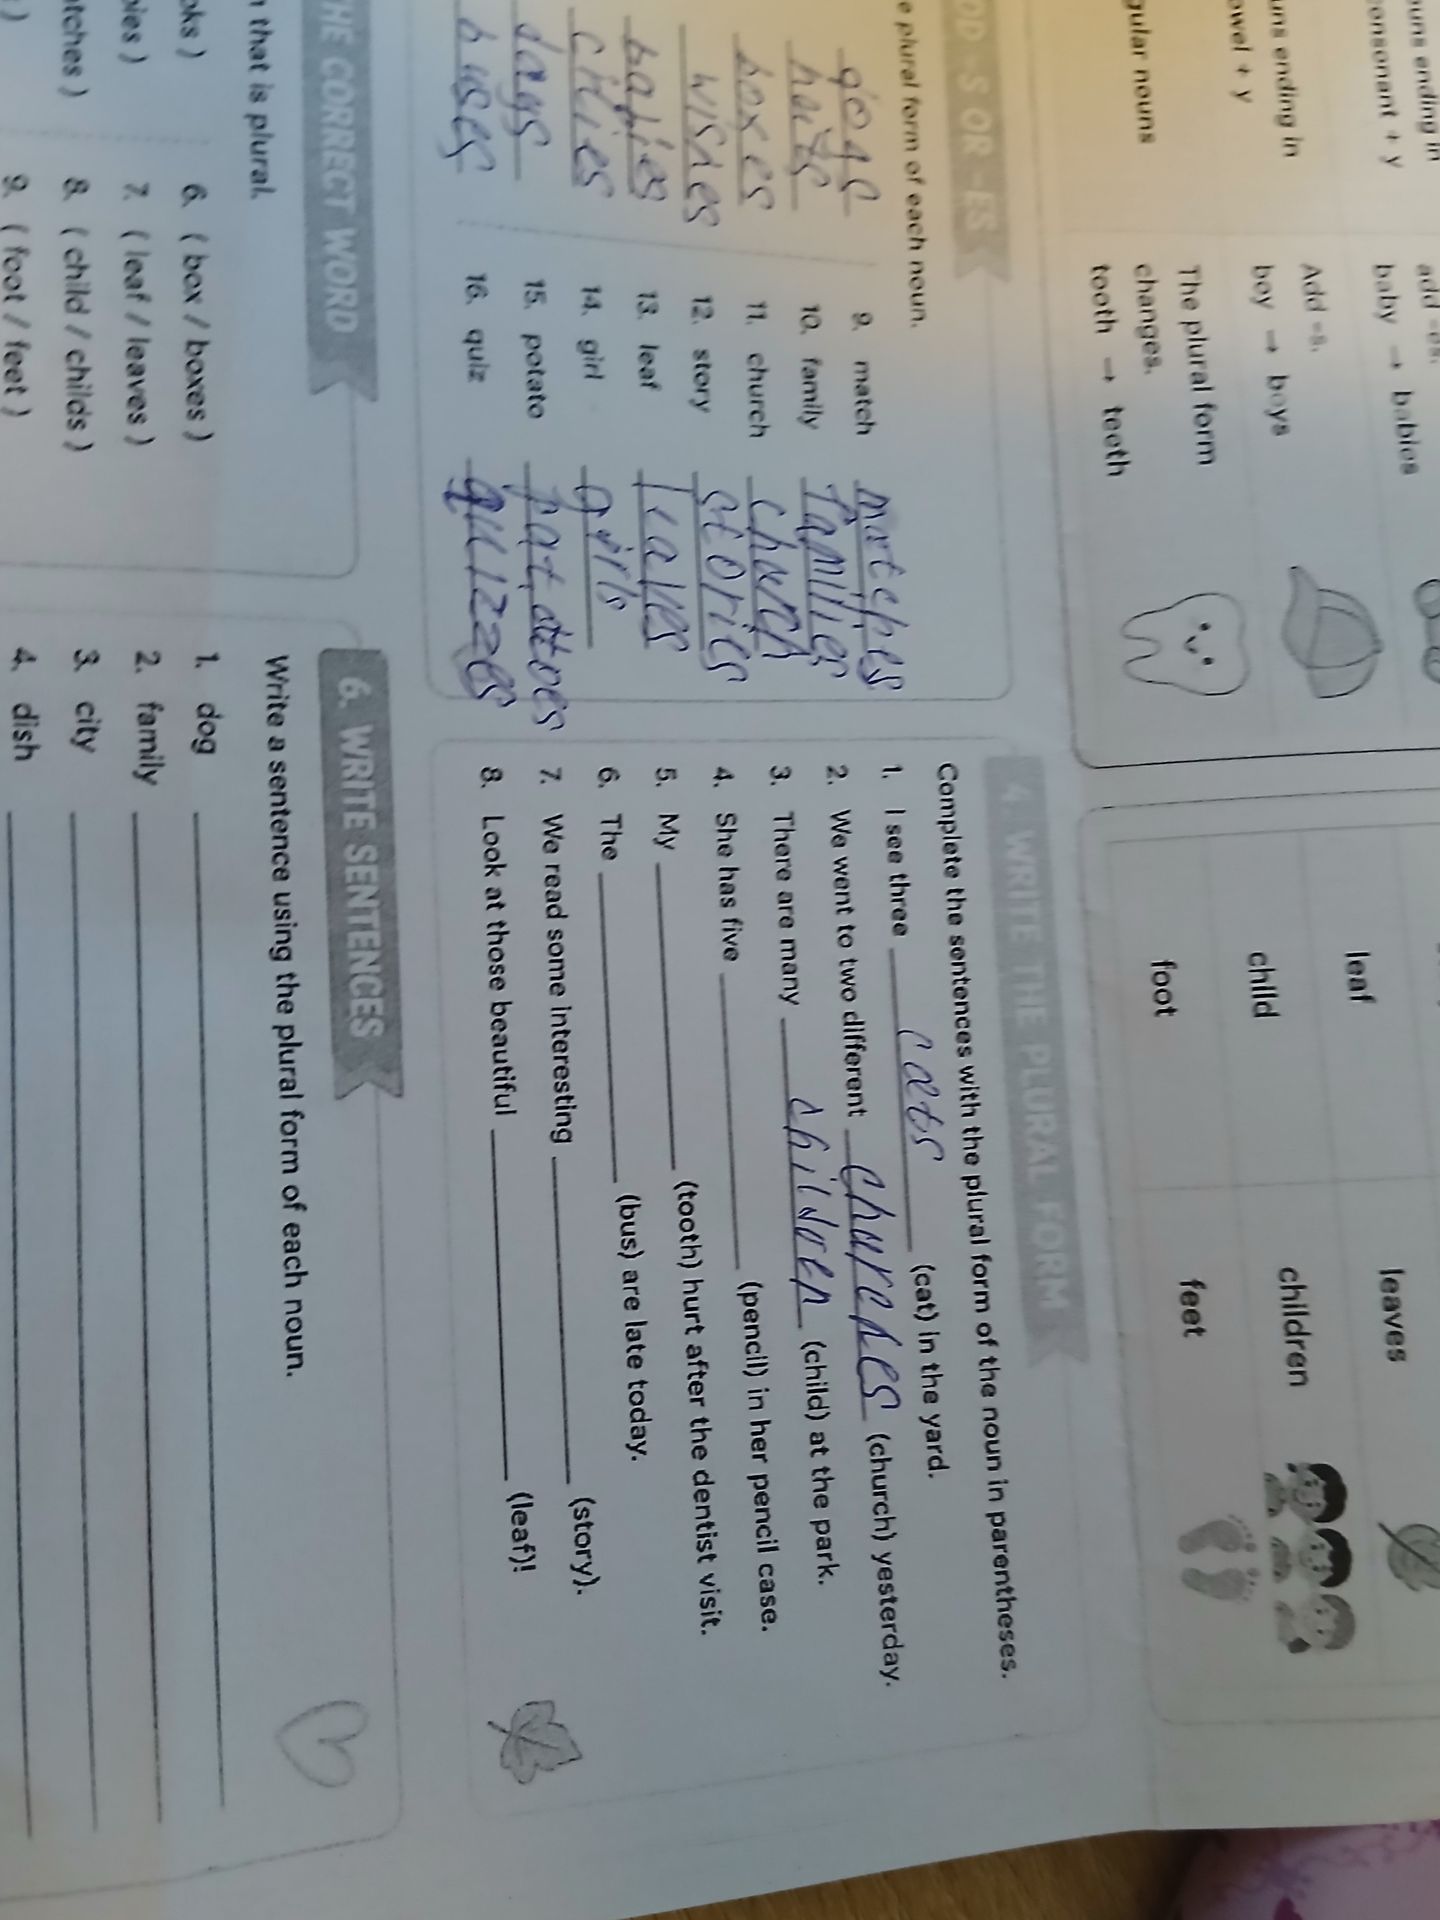 ouns ending in
consonant + y
add -es.
baby → babies
uns ending in
owel + y
Add -s.
boy → boys
gular nouns
The plural form
changes.
tooth → teeth
leaf leaves
child children
foot feet
OD -S OR -ES
e plural form of each noun.
9. match matches
hats
10. family families
boxes
11. church church
wishes
12. story stories
babies
13. leaf
cities
14. girl girls
days
15. potato
buses
16. quiz quizzes
4. WRITE THE PLURAL FORM
Complete the sentences with the plural form of the noun in parentheses.
1. I see three cats (cat) in the yard.
2. We went to two different churches (church) yesterday.
3. There are many children (child) at the park.
4. She has five (pencil) in her pencil case.
5. My (tooth) hurt after the dentist visit.
6. The (bus) are late today.
7. We read some interesting (story).
8. Look at those beautiful (leaf)!
HE CORRECT WORD
that is plural.
oks )
6. ( box / boxes )
ies )
7. ( leaf / leaves )
tches )
8. ( child / childs )
)
9. ( foot / feet )
6. WRITE SENTENCES
Write a sentence using the plural form of each noun.
1. dog
2. family
3. city
4. dish